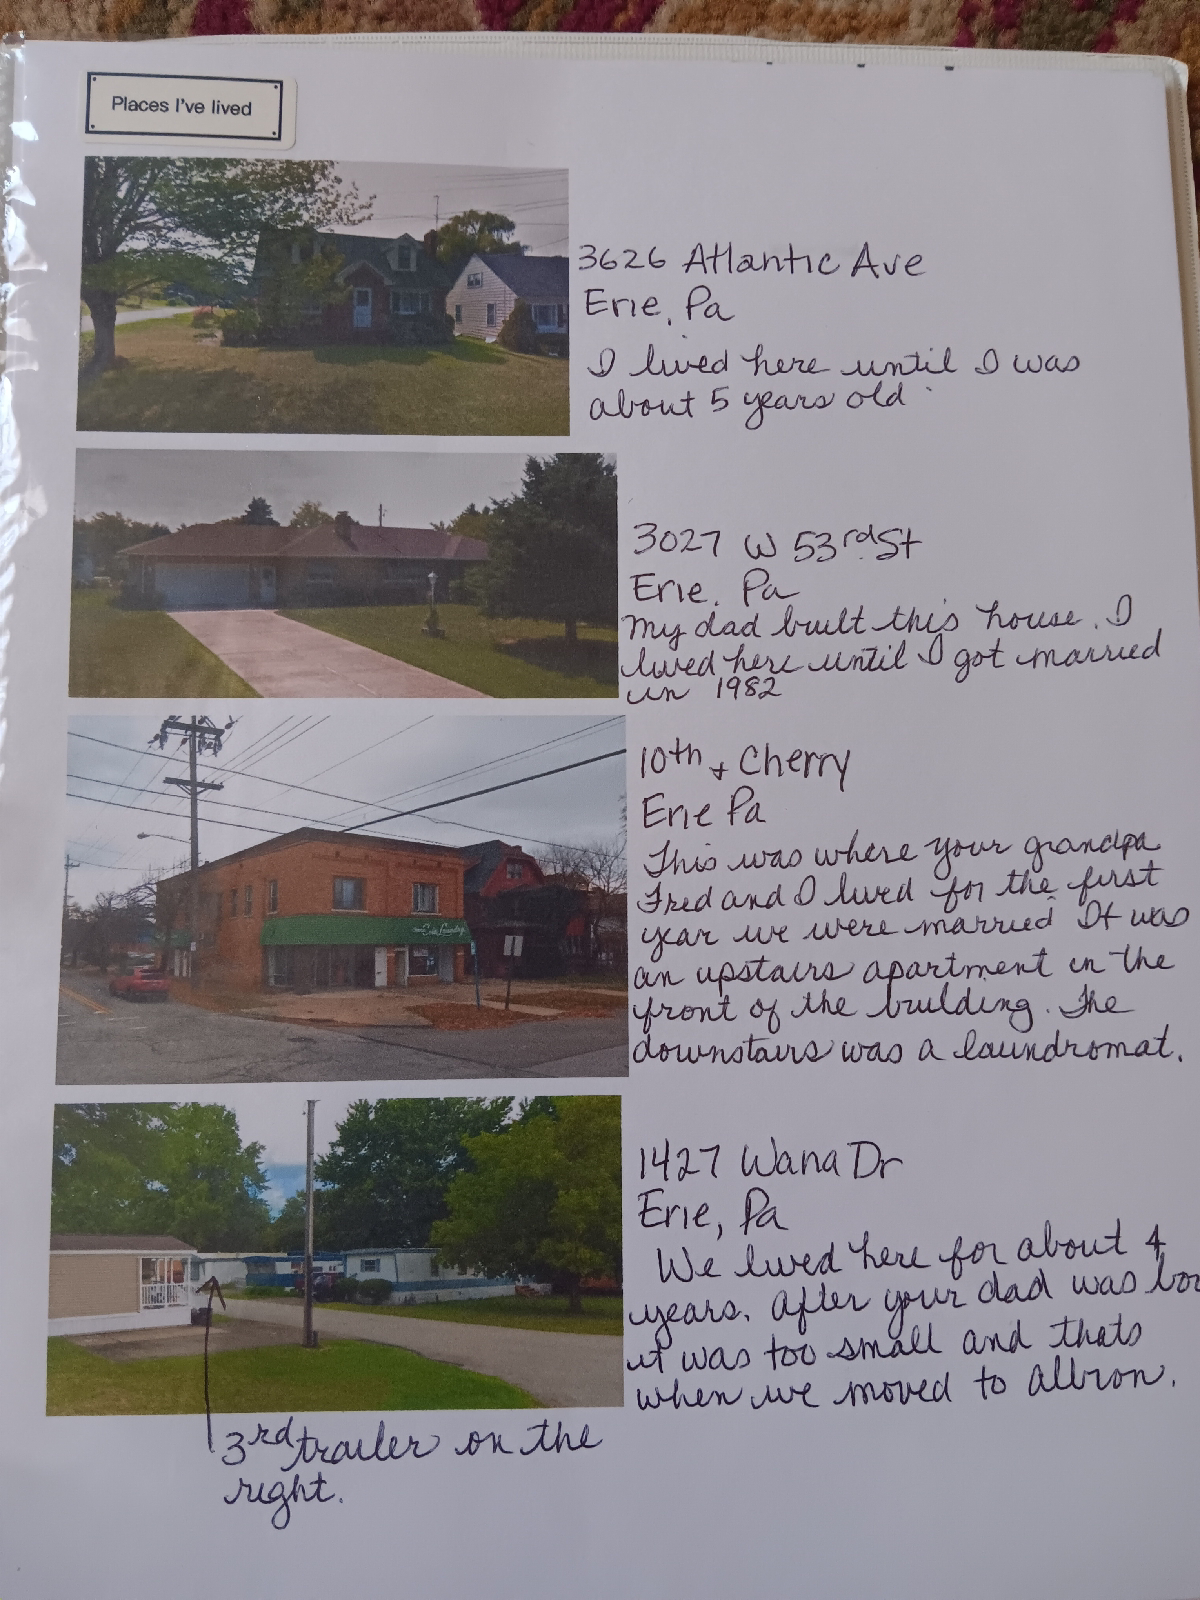 Places I've lived
3626 Atlantic Ave
Erie, Pa
I lived here until I was
about 5 years old
3027 W 53rd St
Erie, Pa
My dad built this house. I
lived here until I got married
in 1982
10th + Cherry
Erie Pa
This was where your grandpa
Fred and I lived for the first
year we were married It was
an upstairs apartment in the
front of the building. The
downstairs was a laundromat.
1427 Wana Dr
Erie, Pa
We lived here for about 4
years. After your dad was bor
it was too small and thats
when we moved to Albion.
3rd trailer on the
right.